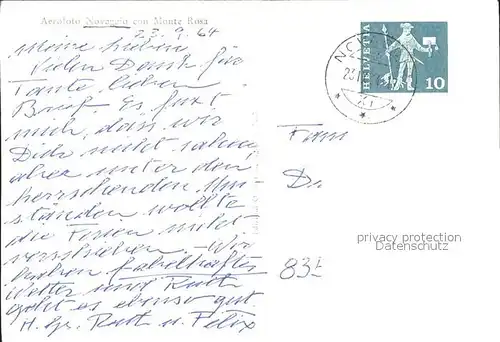 Aerofoto Novaggio con Monte Rosa
23.9.64
Meine Lieben
Vielen Dank für
Tante, lieben
Brief. Es freut
mich, dass wir
Dich nicht sahen,
aber unter den
herrschenden Um-
ständen wollte
die Ferien nicht
verschieben. - Wir
haben fabelhaftes
Wetter und Ruth
geht es ebenso gut.
H. Gr. Ruth u. Felix
HELVETIA
10
Fam
Dr.
83
privacy protection
Datenschutz